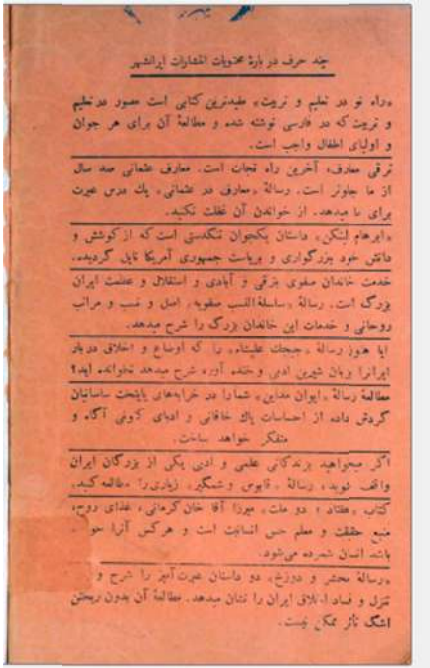 چند حرف در بارهٔ محتویات انتشارات ایرانشهر
«راه نو در تعلیم و تربیت» مفیدترین کتابی است مصور در تعلیم
و تربیت که در فارسی نوشته شده و مطالعهٔ آن برای هر جوان
و اولیای اطفال واجب است.
ترقی معارف، آخرین راه نجات است. معارف عثمانی صد سال
از ما جلوتر است. رسالهٔ «معارف در عثمانی» یك درس عبرت
برای ما میدهد. از خواندن آن غفلت نکنید.
«ابرهام لینکن» داستان یکجوان تنگدستی است که از کوشش و
دانش خود بزرگواری و بریاست جمهوری آمریکا نایل گردیده.
خدمت خاندان صفوی بترقی و آبادی و استقلال و عظمت ایران
بزرگ است. رسالهٔ «سلسلةالنسب صفویه» اصل و نسب و مراتب
روحانی و خدمات این خاندان بزرگ را شرح میدهد.
آیا هنوز رسالهٔ «جیجك علیشاه» را که اوضاع و اخلاق دربار
ایرانرا بزبان شیرین ادبی و خنده آور شرح میدهد نخوانده اید؟
مطالعهٔ رسالهٔ «ایوان مداین» شما را در خرابه‌های پایتخت ساسانیان
گردش داده از احساسات پاك خاقانی و ادبای کنونی آگاه و
متفکر خواهد ساخت.
اگر میخواهید بزندگانی علمی و ادبی یکی از بزرگان ایران
واقف شوید، رسالهٔ «قابوس وشمگیر» زیاری را مطالعه کنید.
کتاب «هفتاد و دو ملت» میرزا آقا خان کرمانی، غذای روح،
منبع حقیقت و معلم حس انسانیت است و هرکس آنرا
باشد انسان شمرده می‌شود.
«رسالهٔ محشر و دوزخ» دو داستان عبرت‌آمیز را شرح و
تنزل و فساد اخلاق ایران را نشان میدهد. مطالعهٔ آن بدون ریختن
اشگ تأثر ممکن نیست.